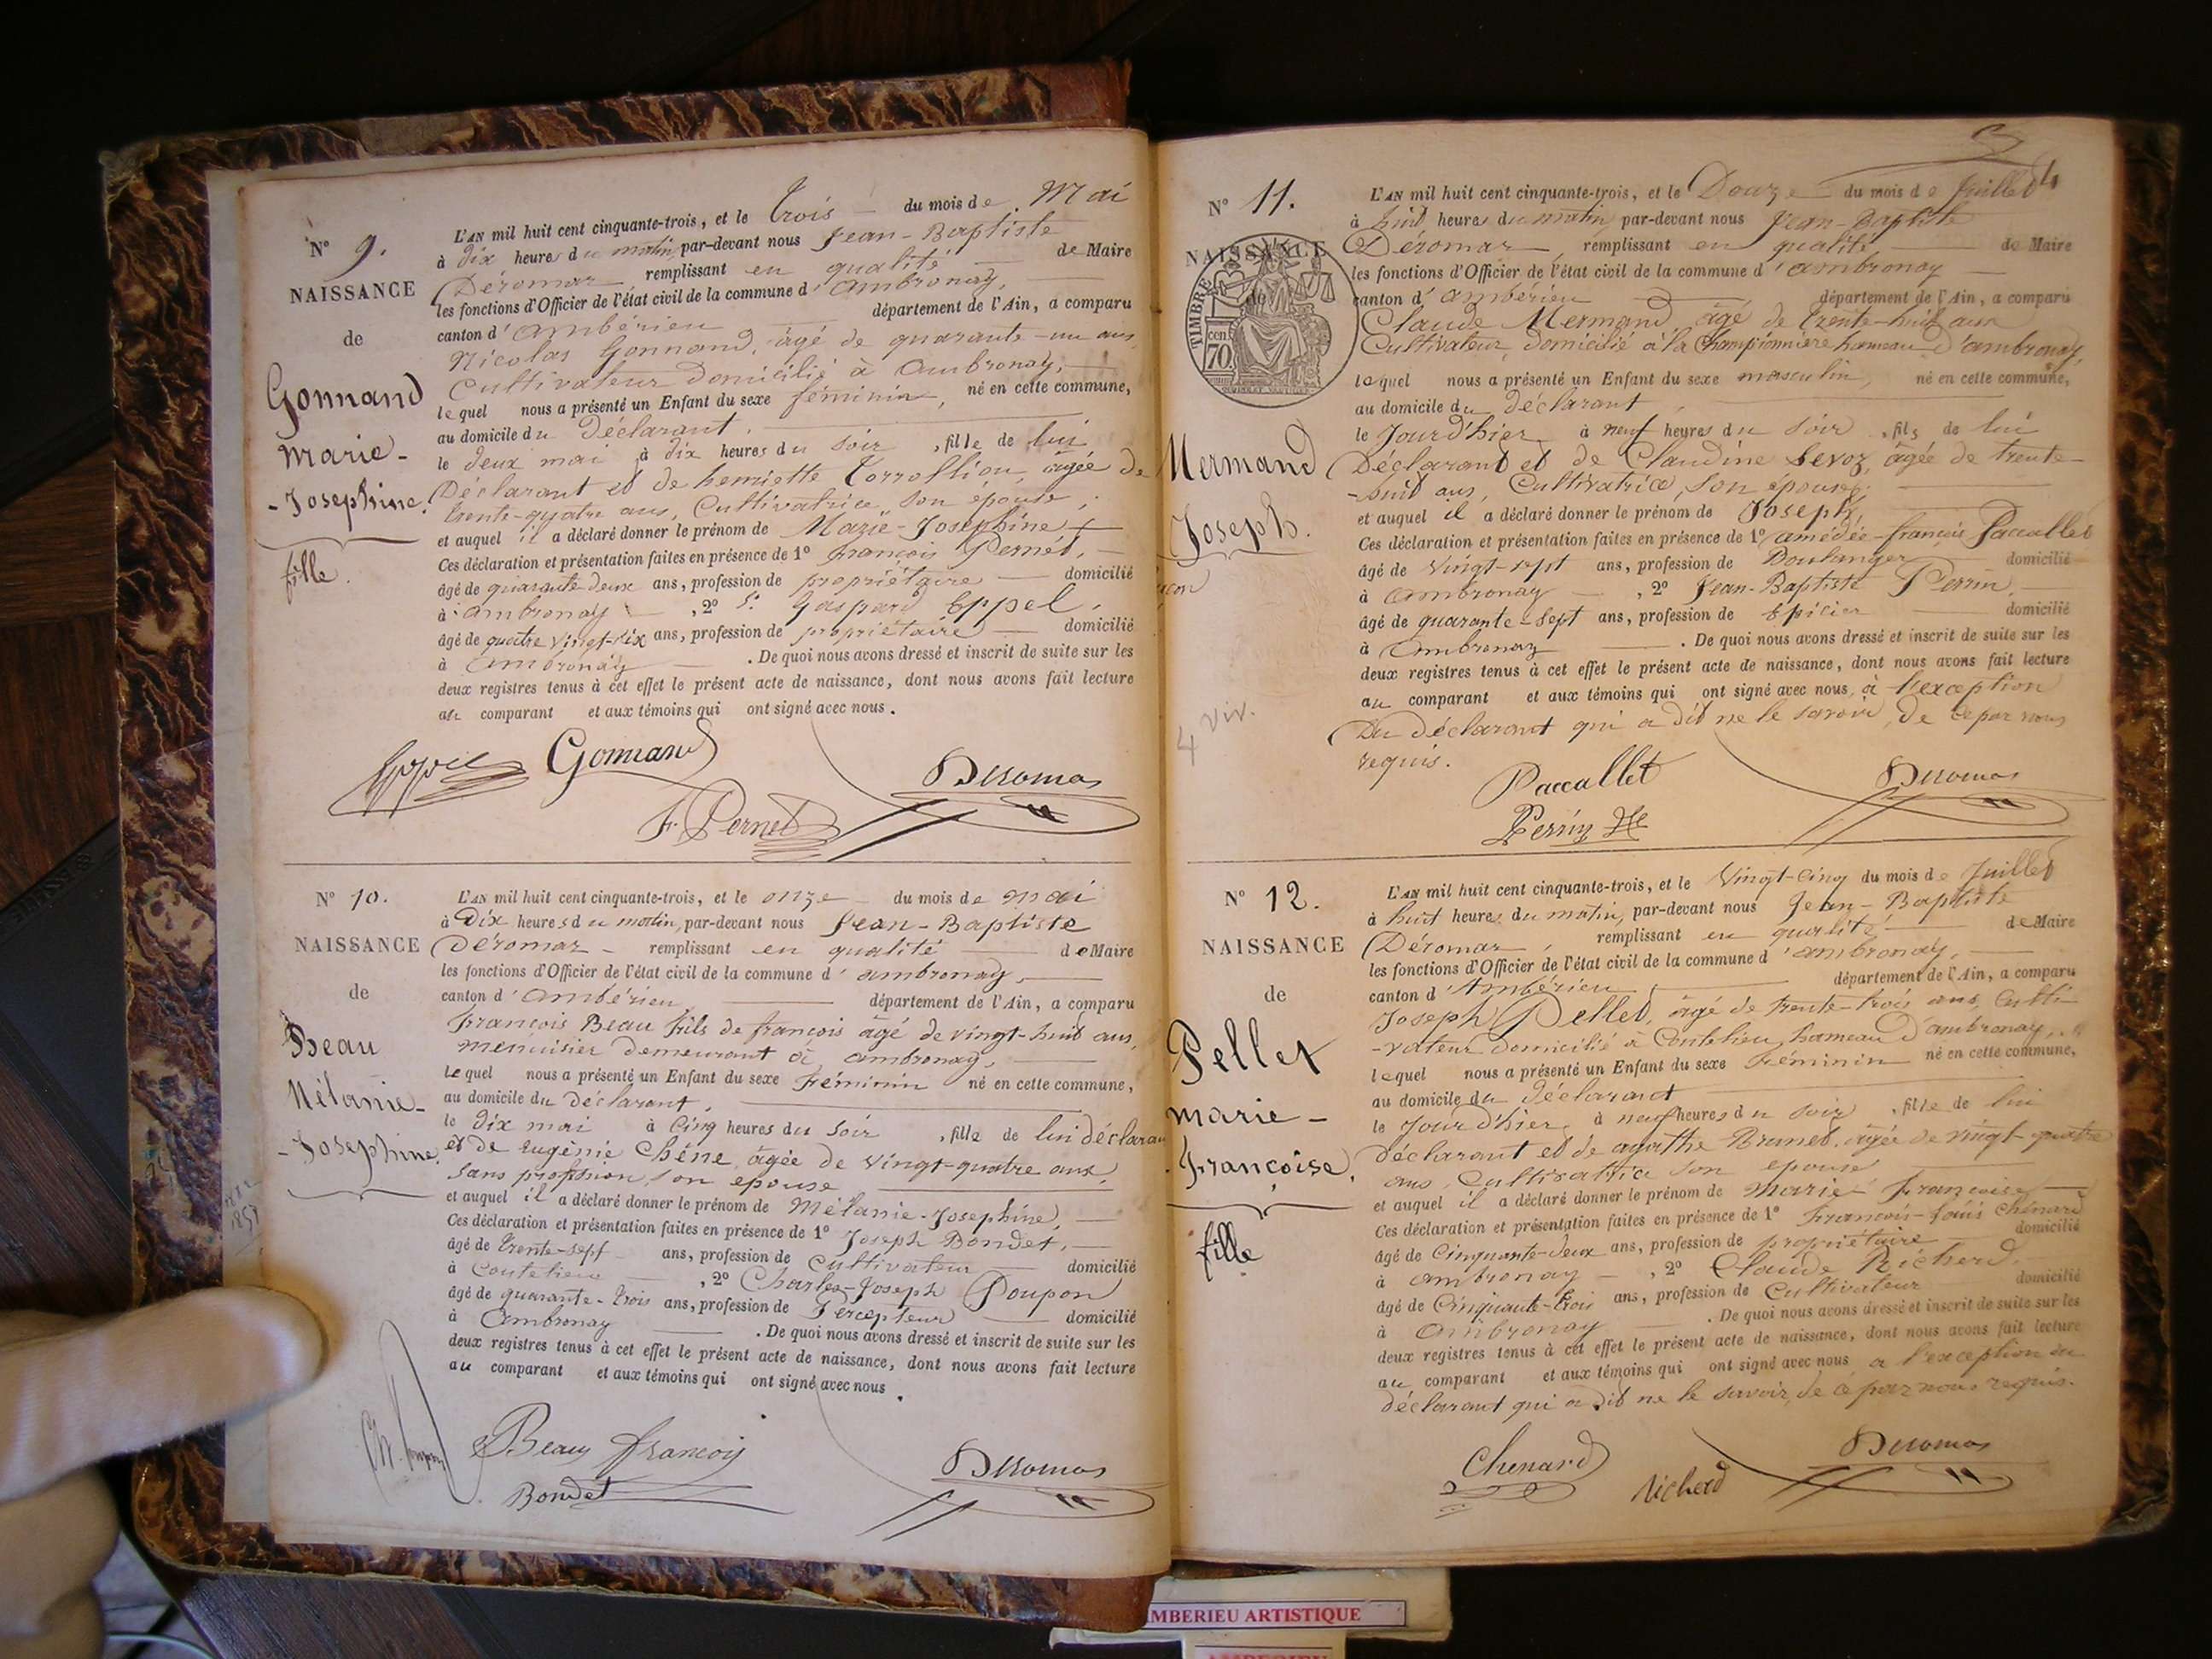 N° 9.
NAISSANCE
de
Gonnand
Marie-
-Josephine.
fille.
L'AN mil huit cent cinquante-trois, et le trois du mois de Mai
à dix heures du matin, par-devant nous Jean-Baptiste
Déromas remplissant en qualité de Maire
les fonctions d'Officier de l'état civil de la commune d'Ambronay,
canton d'Ambérieu département de l'Ain, a comparu
Nicolas Gonnand, âgé de quarante-un ans,
Cultivateur domicilié à Ambronay,
lequel nous a présenté un Enfant du sexe féminin, né en cette commune,
au domicile du Déclarant.
le deux mai à dix heures du soir, fille de lui
Déclarant et de henriette âgée de
trente-quatre ans, Cultivatrice, son épouse,
et auquel il a déclaré donner le prénom de Marie-Joséphine
Ces déclaration et présentation faites en présence de 1° françois Pernet,
âgé de quarante deux ans, profession de propriétaire domicilié
à Ambronay, 2° Sr Gaspard Eppel,
âgé de quatre vingt-dix ans, profession de propriétaire domicilié
à Ambronay. De quoi nous avons dressé et inscrit de suite sur les
deux registres tenus à cet effet le présent acte de naissance, dont nous avons fait lecture
au comparant et aux témoins qui ont signé avec nous.
Gonnand
Deromas
F. Pernet
N° 10.
NAISSANCE
de
Beau
Mélanie-
-Josephine.
L'AN mil huit cent cinquante-trois, et le onze du mois de mai
à Dix heures du matin, par-devant nous Jean-Baptiste
Déromas - remplissant en qualité de Maire
les fonctions d'Officier de l'état civil de la commune d'ambronay,
canton d'Ambérieu département de l'Ain, a comparu
François Beau fils de françois âgé de vingt-huit ans,
menuisier demeurant à ambronay,
lequel nous a présenté un Enfant du sexe Féminin né en cette commune,
au domicile du déclarant,
le dix mai à Cinq heures du soir, fille de lui déclarant
et de Eugénie Chêne, âgée de vingt-quatre ans,
sans profession, son epouse
et auquel il a déclaré donner le prénom de Mélanie-Josephine,
Ces déclaration et présentation faites en présence de 1° Joseph Bondet,
âgé de trente-sept ans, profession de Cultivateur domicilié
à Coutelieu, 2° Charles-Joseph Poupon
âgé de quarante-trois ans, profession de Percepteur domicilié
à Ambronay. De quoi nous avons dressé et inscrit de suite sur les
deux registres tenus à cet effet le présent acte de naissance, dont nous avons fait lecture
au comparant et aux témoins qui ont signé avec nous.
Beau françois
Bondet
Deromas
N° 11.
NAISSANCE
de
TIMBRE
cen.
70.
Mermand
Joseph.
4 Viv.
L'AN mil huit cent cinquante-trois, et le Douze du mois de Juillet
à huit heures du matin, par-devant nous Jean-Baptiste
Déromas, remplissant en qualité de Maire
les fonctions d'Officier de l'état civil de la commune d'ambronay
canton d'ambérieu département de l'Ain, a comparu
Claude Mermand, âgé de trente-huit ans
Cultivateur, domicilié à la Championnière hameau d'ambronay,
lequel nous a présenté un Enfant du sexe masculin, né en cette commune,
au domicile du déclarant,
le Jour d'hier, à neuf heures du soir, fils de lui
Déclarant et de Claudine Sevoz, âgée de trente-
-huit ans, Cultivatrice, son épouse,
et auquel il a déclaré donner le prénom de Joseph,
Ces déclaration et présentation faites en présence de 1° amédée-françois Paccallet
âgé de vingt-sept ans, profession de Boulanger domicilié
à ambronay, 2° Jean-Baptiste Perrin,
âgé de quarante-sept ans, profession de Epicier domicilié
à Ambronay. De quoi nous avons dressé et inscrit de suite sur les
deux registres tenus à cet effet le présent acte de naissance, dont nous avons fait lecture
au comparant et aux témoins qui ont signé avec nous, à l'exception
Du déclarant qui a dit ne le savoir, de ce par nous
requis.
Paccallet
Deromas
Perrin
N° 12.
NAISSANCE
de
Pellet
marie-
-Françoise.
fille
L'AN mil huit cent cinquante-trois, et le Vingt-Cinq du mois de Juillet
à huit heures du matin, par-devant nous Jean-Baptiste
Déromas, remplissant en qualité de Maire
les fonctions d'Officier de l'état civil de la commune d'ambronay,
canton d'Ambérieu, département de l'Ain, a comparu
Joseph Pellet, âgé de trente-trois ans, Culti-
-vateur domicilié à Coutelieu, hameau d'ambronay,
lequel nous a présenté un Enfant du sexe Féminin né en cette commune,
au domicile du déclarant
le Jour d'hier, à neuf heures du soir, fille de lui
déclarant et de agathe Brunet, âgée de vingt-quatre
ans, Cultivatrice son epouse
et auquel il a déclaré donner le prénom de Marie Françoise
Ces déclaration et présentation faites en présence de 1° François-Louis Chénard
âgé de Cinquante-deux ans, profession de propriétaire domicilié
à ambronay, 2° Claude Richerd,
âgé de Cinquante-trois ans, profession de Cultivateur domicilié
à Ambronay. De quoi nous avons dressé et inscrit de suite sur les
deux registres tenus à cet effet le présent acte de naissance, dont nous avons fait lecture
au comparant et aux témoins qui ont signé avec nous a l'exception du
déclarant qui a dit ne le savoir, de ce par nous requis.
Chenard
Richerd
Deromas
AMBERIEU ARTISTIQUE